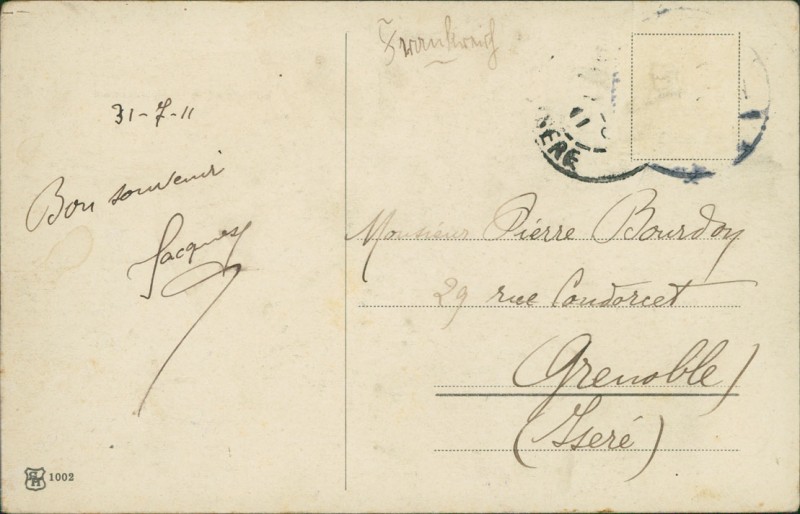 31-7-11
Bon souvenir
Jacques
1002
Frankreich
ISERE
11
Monsieur Pierre Bourdon
29 rue Condorcet
Grenoble
(Iseré)